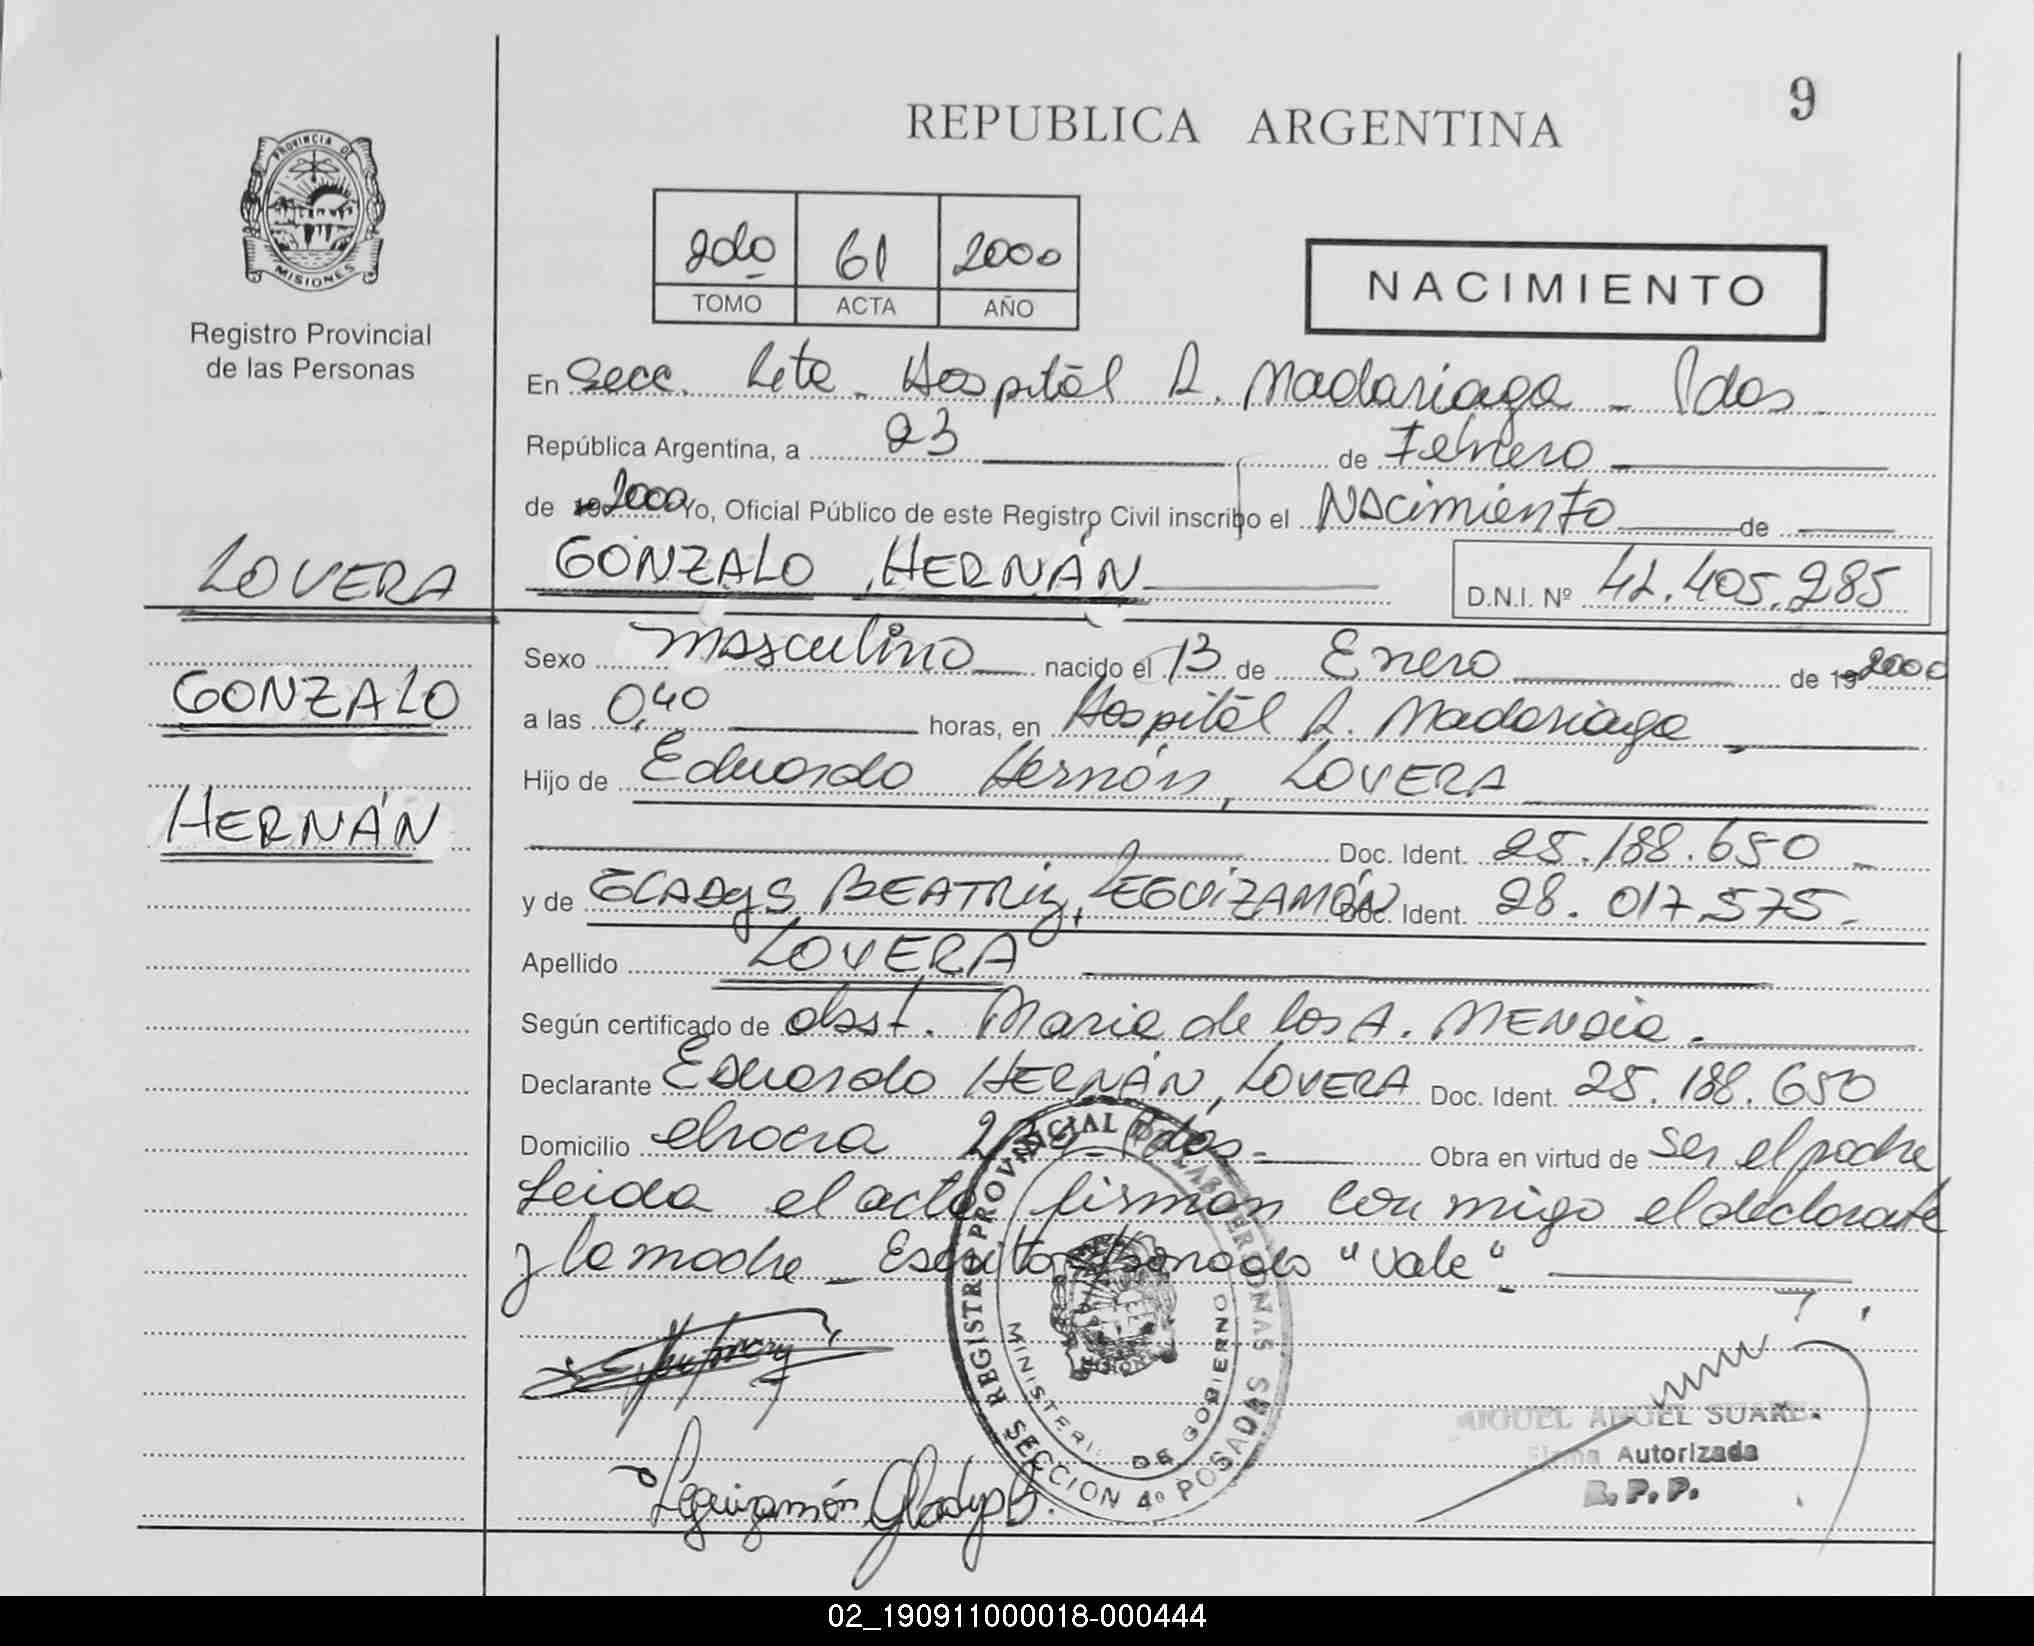 9
REPUBLICA ARGENTINA
PROVINCIA DE
MISIONES
Registro Provincial
de las Personas
2do 61 2000
TOMO ACTA AÑO
NACIMIENTO
En Secc. 4ta - Hospital R. Madariaga - Pdas
República Argentina, a 23 de Febrero
de 19 2000 Yo, Oficial Público de este Registro Civil inscribo el Nacimiento de
LOVERA
GONZALO, HERNÁN
D.N.I. Nº 42.405.285
GONZALO
HERNÁN
Sexo masculino nacido el 13 de Enero de 19 2000
a las 0,40 horas, en Hospital R. Madariaga
Hijo de Eduardo Hernán, LOVERA
Doc. Ident. 25.188.650
y de GLADYS BEATRIZ, LEGUIZAMÓN Doc. Ident. 28.017.575.
Apellido LOVERA
Según certificado de obst. Maria de los A. MENDIA.
Declarante Eduardo HERNÁN, LOVERA Doc. Ident. 25.188.650
Domicilio Pdas. Obra en virtud de Ser el padre
Leida el acta firman con migo el declarante
y la madre - Escrito "vale"
REGISTRO PROVINCIAL DE LAS PERSONAS
MINISTERIO DE GOBIERNO
SECCION 4º POSADAS
MIGUEL ANGEL SUAREZ
Firma Autorizada
R.P.P.
Leguizamón Gladys B.
02_190911000018-000444